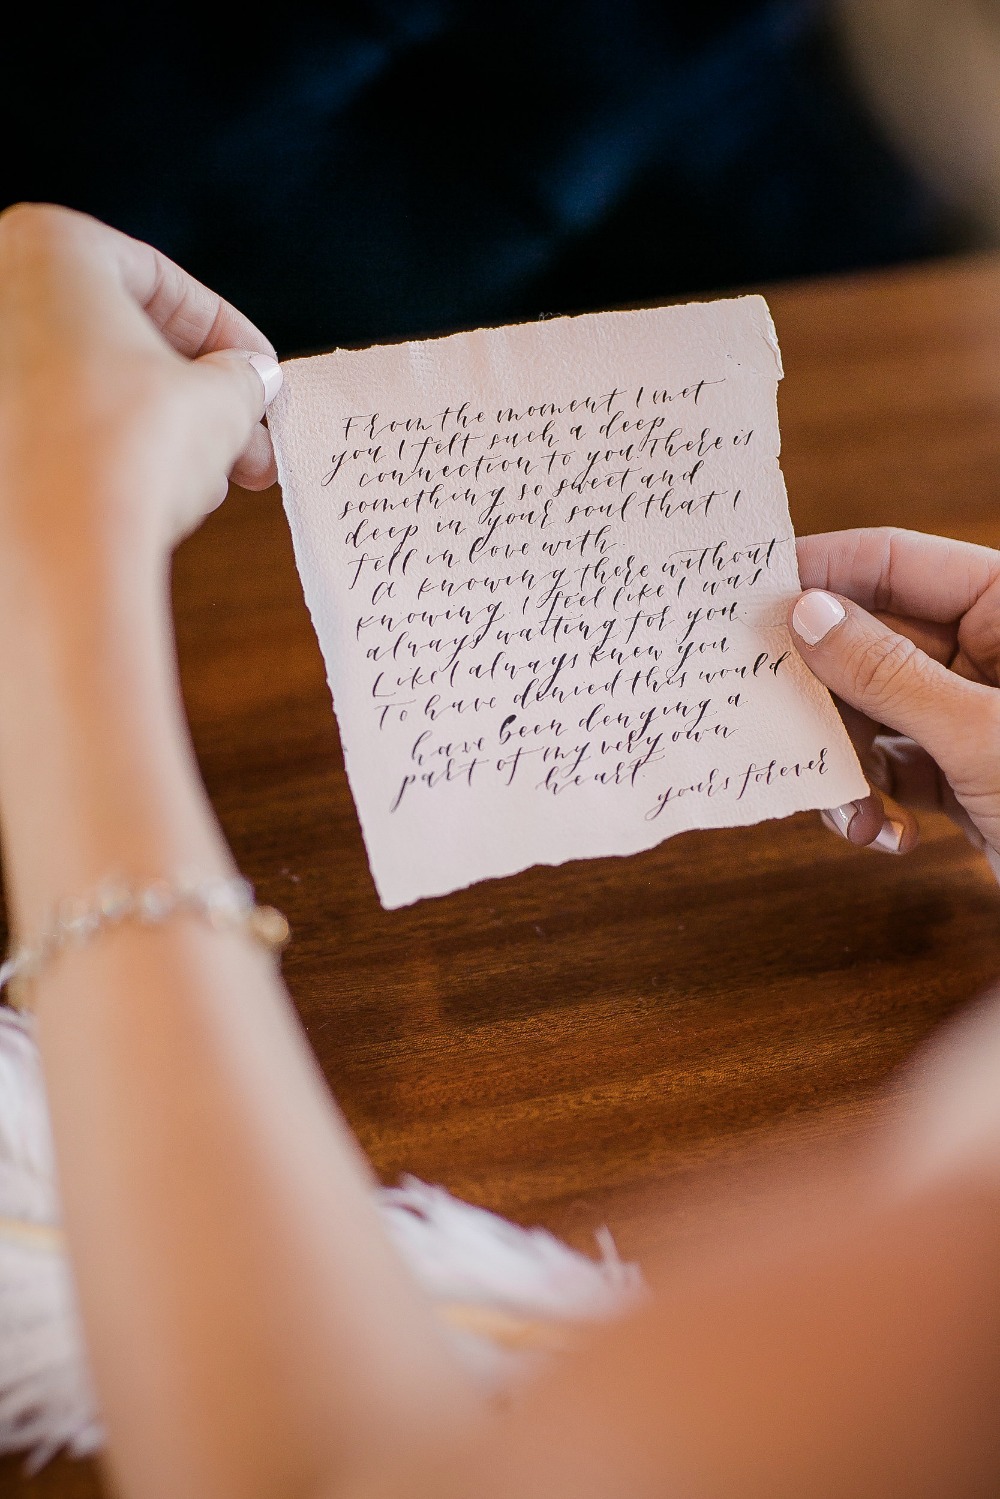 From the moment I met
you I felt such a deep
connection to you. There is
something so sweet and
deep in your soul that I
fell in love with.
A knowing there without
knowing. I feel like I was
always waiting for you.
Like I always knew you
To have denied this would
have been denying a
part of my very own
heart.
yours forever